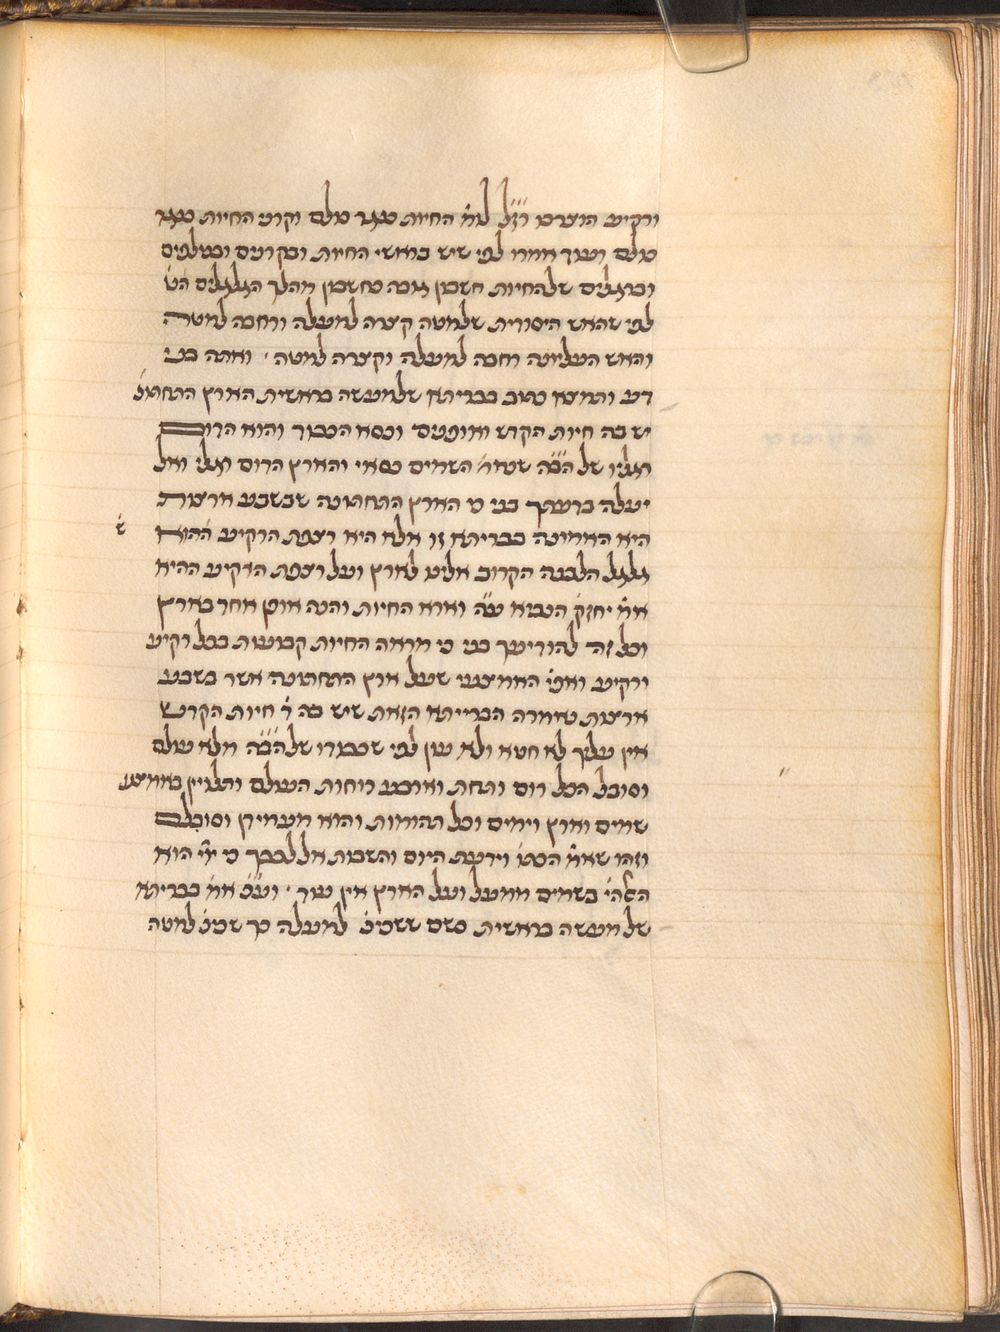 ורקיע הוצרכו רז"ל לומ' החיות כנגד כולם וקרני החיות כנגד
כולם ועוד אמרו לפי שיש בראשי החיות ובקרנים ובטלפים
וברגלים שלהחיות חשבון גובה כחשבון מהלך הגלגלים הט'
לפי שהאש היסודית שלמטה קצרה למעלה ורחבה למטה
והאש העליונה רחבה למעלה וקצרה למטה ואתה בני
דע ותמצא כתוב בבריתא שלמעשה בראשית הארץ התחתונ'
יש בה חיות הקדש ואופנים וכסא הכבוד והוא הדום
רגליו של הב"ה שנא' השמים כסאי והארץ הדום רגלי ואל
יעלה בדעתך בני כי הארץ התחתונה שבשבע ארצות
היא האמורה בבריתא זו אלא היא רצפת הרקיע ההוא
גלגל הלבנה הקרוב אלינו לארץ ועל רצפת הרקיע ההיא
אמ' יחזק' הנביא ע"ה וארא החיות והנה אופן אחד בארץ
וכל זה להודיעך בני כי מראה החיות קבועות בכל רקיע
ורקיע ואפי' האמצעי שעל ארץ התחתונה אשר בשבע
ארצות כאמרה הברייתא הזאת שיש בה ד' חיות הקדש
אין עליך לא חטא ולא עון לפי שכבודו של הב"ה מלא עולם
וסובל הכל רום ותחת וארבע רוחות העולם ותלויין באמצע
שמים וארץ וימים וכל תהומות והוא מעמיקן וסובלם
וזהו שאמ' הכתו' וידעת היום והשבות אל לבבך כי יי' הוא
האלהי' בשמים ממעל ועל הארץ אין עוד ועכ' אמ' בבריתא
של מעשה בראשית כשם ששכינ' למעלה כך שכינ' למטה